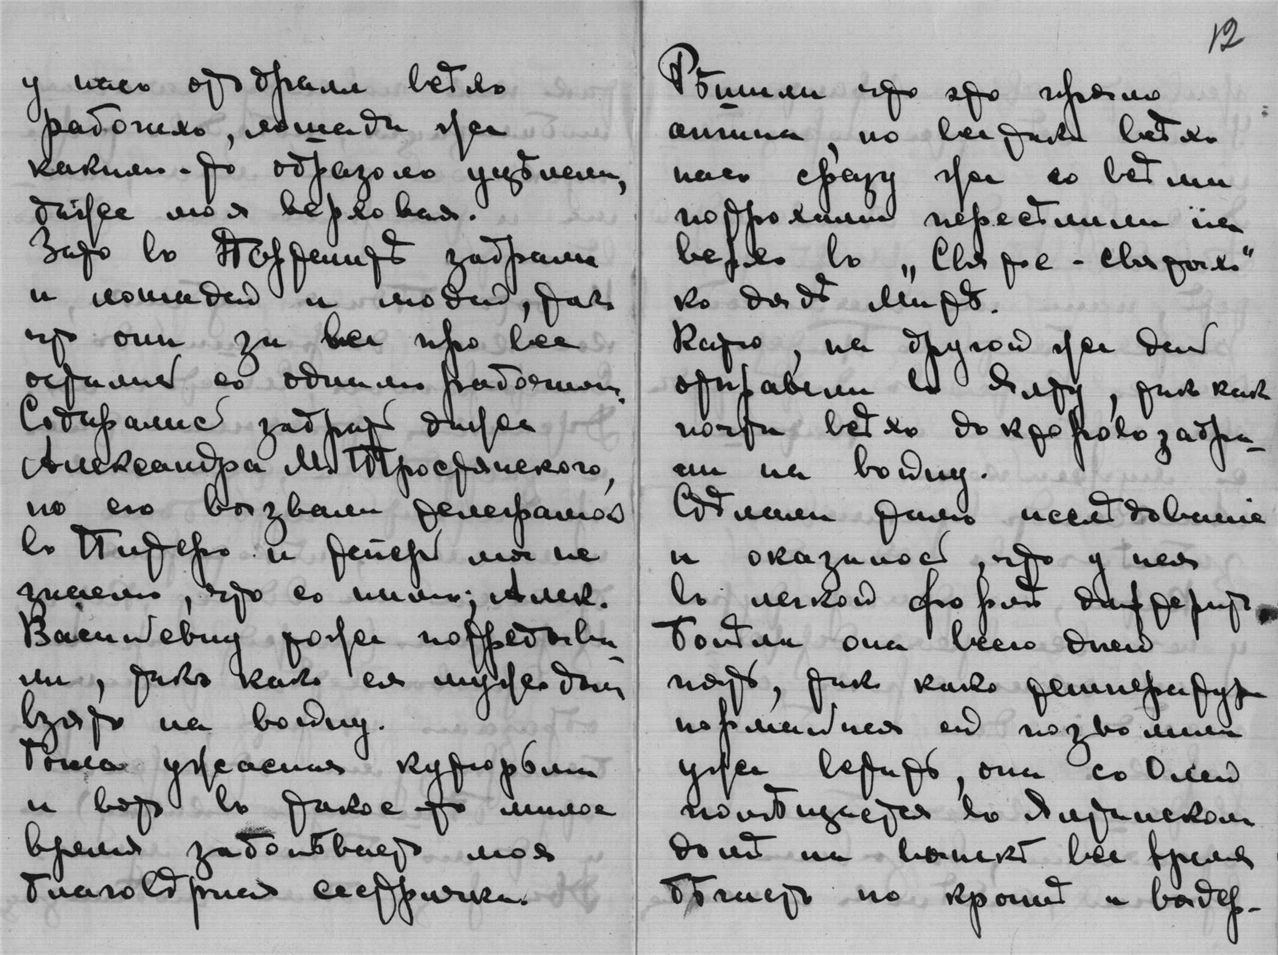 у насъ отобрали всѣхъ
рабочихъ, лошади же
какимъ-то образомъ уцѣлели,
даже моя верховая.
Зато въ забрали
и лошадей и людей, такъ
что они за все про все
остались съ однимъ рабочимъ.
Собирались забрать даже
Александра М. Тростянского,
но его вызвали телеграммой
въ Питеръ и теперь мы не
знаемъ, что съ нимъ; Алек.
Васильевну тоже потребова-
ли, такъ какъ ея мужъ былъ
взятъ на войну.
Была ужасная кутерьма
и вотъ въ такое-то милое
время заболѣваетъ моя
сестричка.
12
Рѣшили что это просто
ангина, но все таки всѣхъ
насъ сразу же со всѣми
потрохами переселили на
верхъ въ „Святое-святыхъ"
ко дядѣ Митѣ.
Катю, на другой же день
отправили въ Ялту, такъ какъ
почти всѣхъ докторовъ забра-
ли на войну.
Сдѣлали тамъ изслѣдованіе
и оказалось, что у нея
въ легкой формѣ дифтеритъ
Болѣла она всего дней
пять, такъ какъ температура
нормальная ей позволили
уже встать, она со Олей
помѣщается въ Ялтинскомъ
домѣ на все время
бѣгаетъ по и